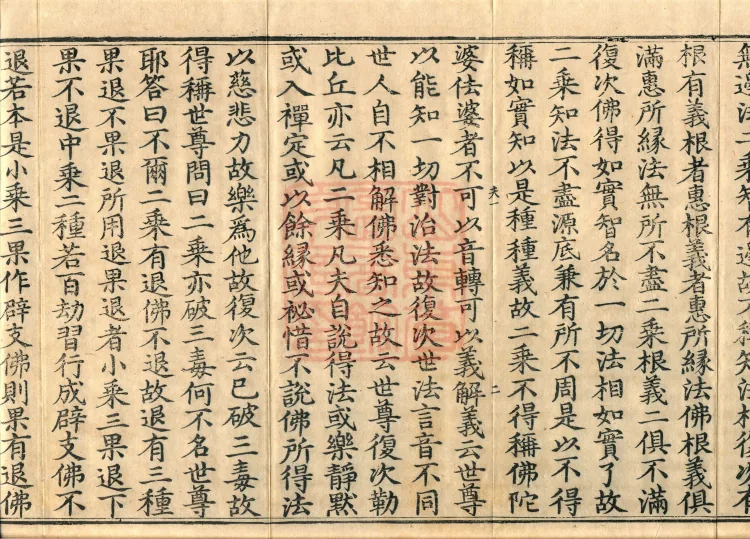 根有義根者惠根義者惠所縁法佛根義俱
滿惠所縁法無所不盡二乘根義二俱不滿
復次佛得如實智名於一切法相如實了故
二乘知法不盡源底兼有所不周是以不得
稱如實知以是種種義故二乘不得稱佛陀
二
婆佉婆者不可以音轉可以義解義云世尊
以能知一切對治法故復次世法言音不同
世人自不相解佛悉知之故云世尊復次勒
比丘亦云凡二乘凡夫自說得法或樂靜默
或入禪定或以餘縁或祕惜不說佛所得法
以慈悲力故樂爲他故復次云已破三毒故
得稱世尊問曰二乘亦破三毒何不名世尊
耶答曰不爾二乘有退佛不退故退有三種
果退不果退所用退果退者小乘三果退下
果不退中乘二種若百劫習行成辟支佛不
退若本是小乘三果作辟支佛則果有退佛